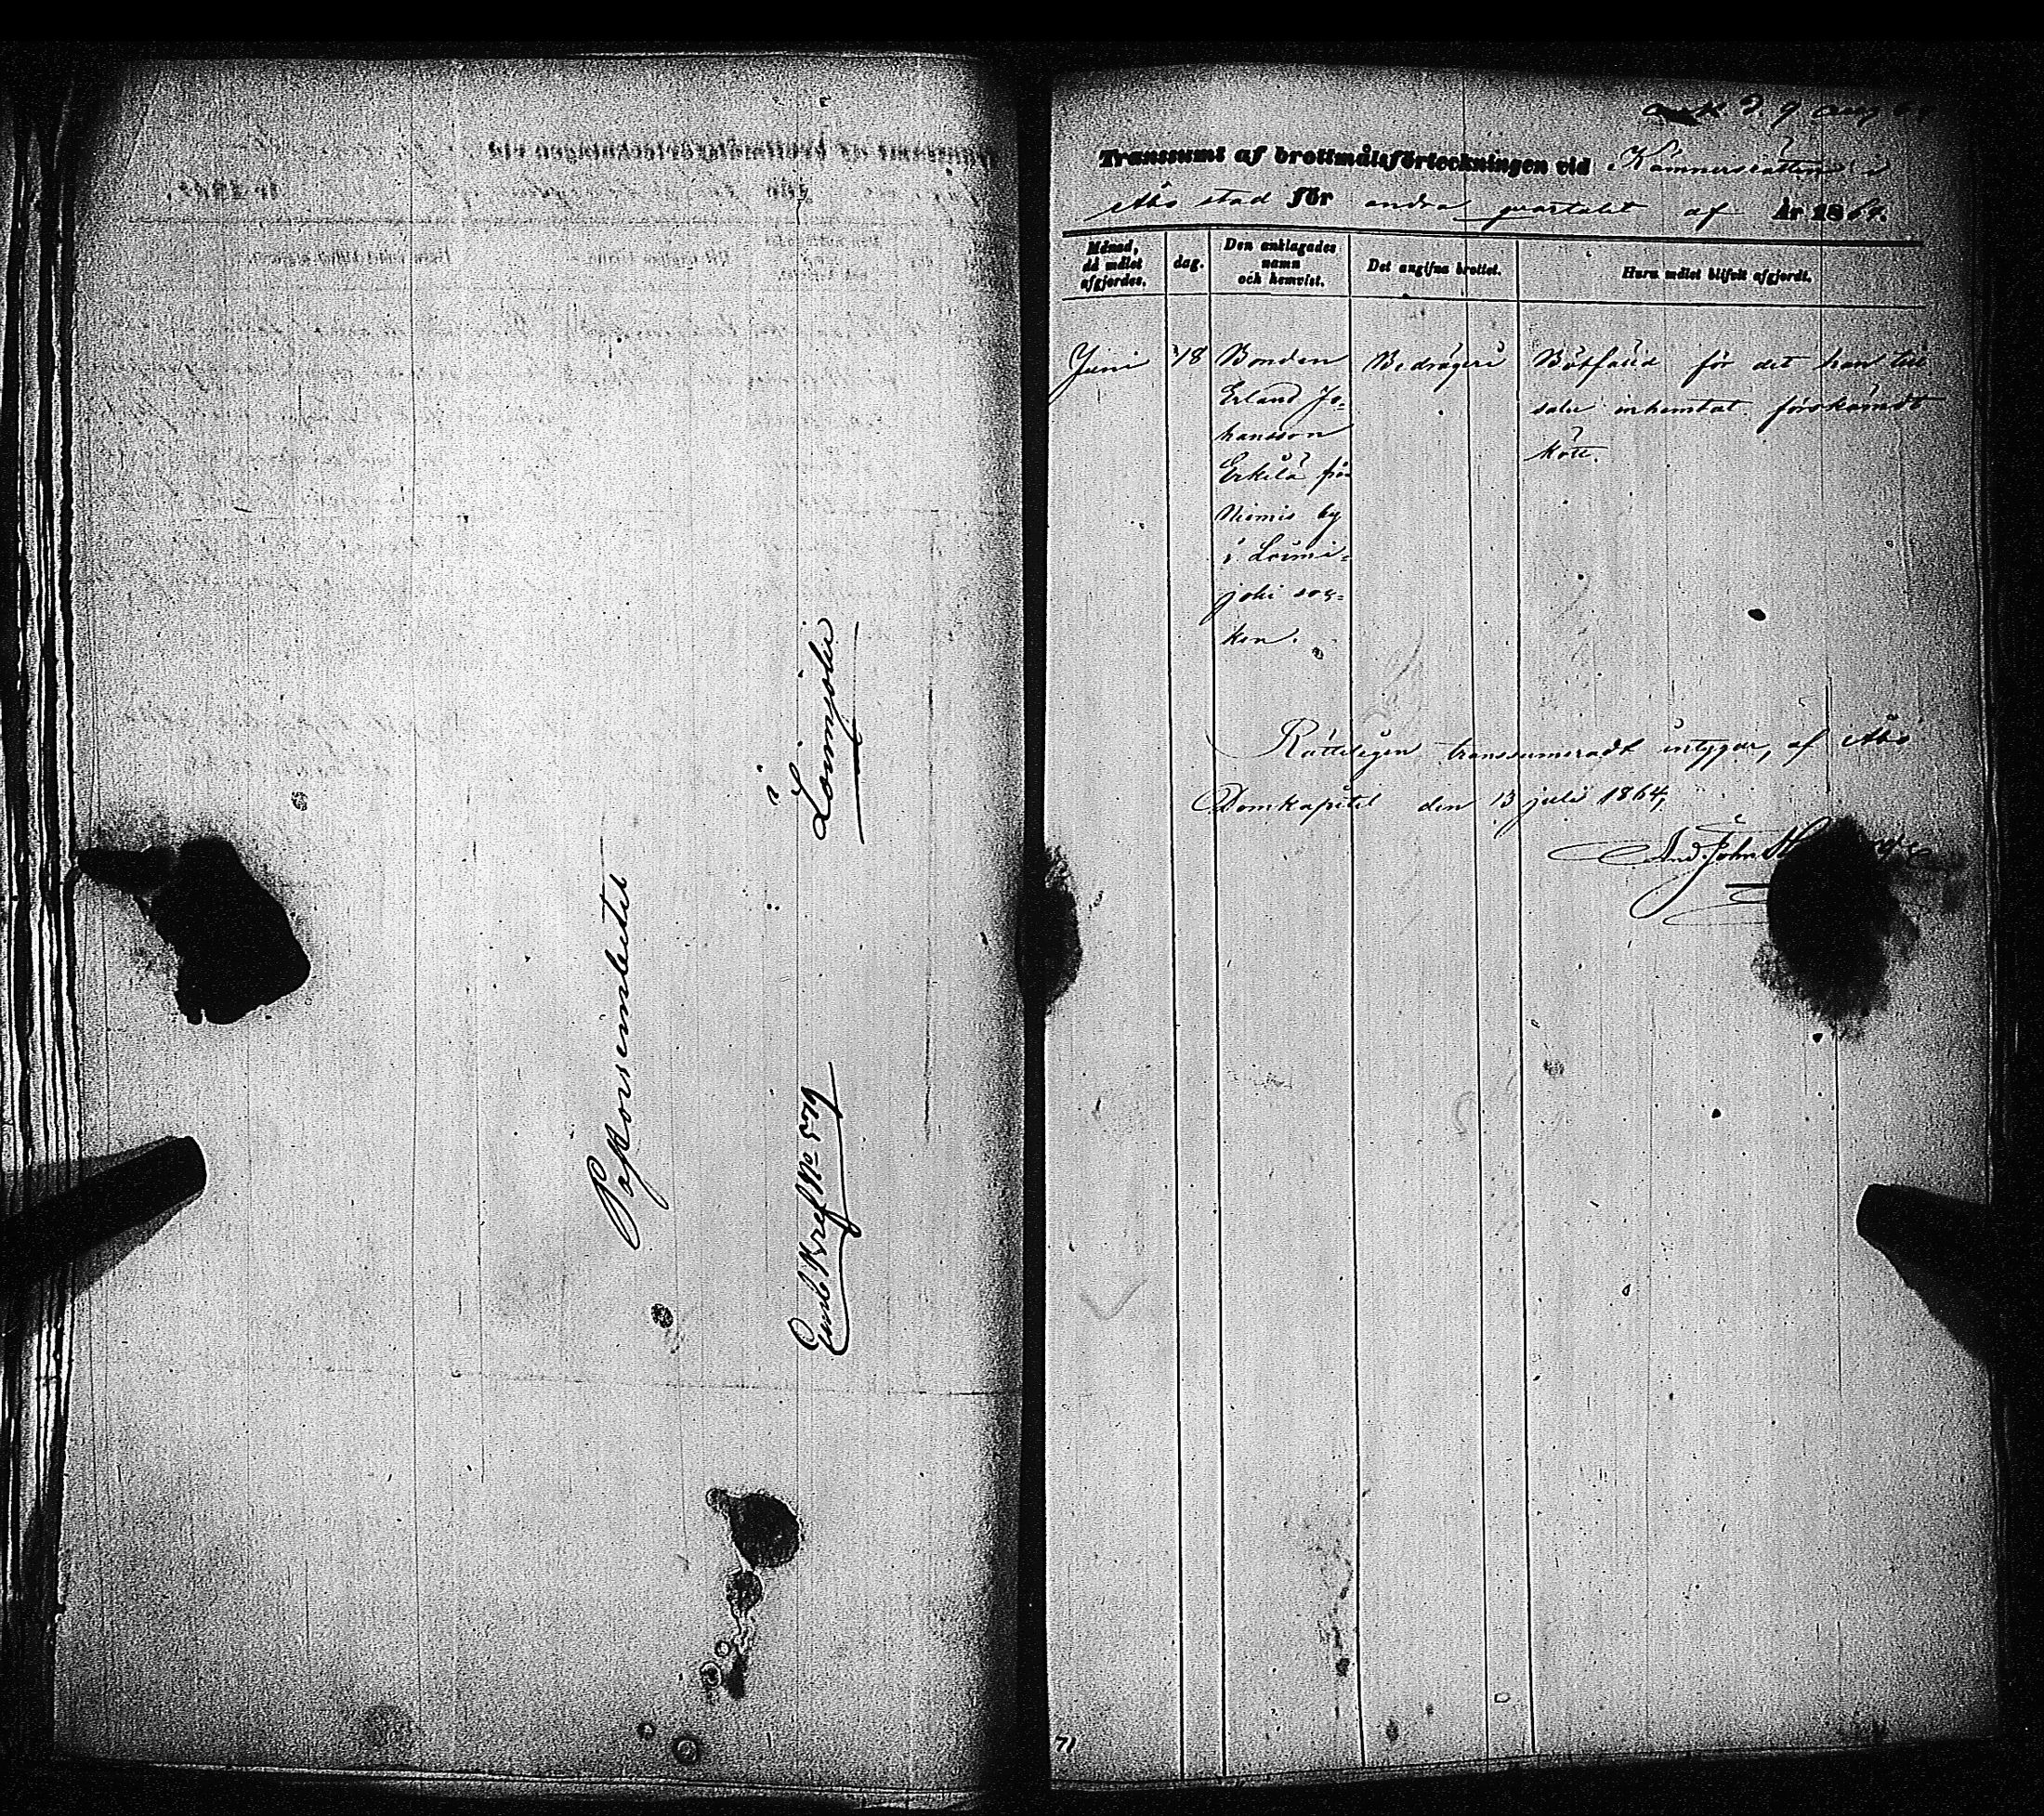 Pastorsembetet
i Loimijoki
Embetsbref No 579
ank. d. 9 aug 64
Transsumt af brottmålsförteckningen vid Kämnersrätten i
Åbo stad för andra qvartalet af År 1864.
Månad,
då målet
afgjordes.
dag.
Den anklagades
namn
och hemvist.
Det angifna brottet.
Huru målet blifvit afgjordt.
Juni
18
Bonden
Erland Jo-
hansson
Erkilä frå
Niemis by
i Loimi-
joki soc-
ken.
Bedrägeri
Botfäld för det han till
salu inhemtat förskämdt
kött.
Rätteligen transsumeradt intygar, af Åbo
Domkapitel den 13 juli 1864,
And. John
71